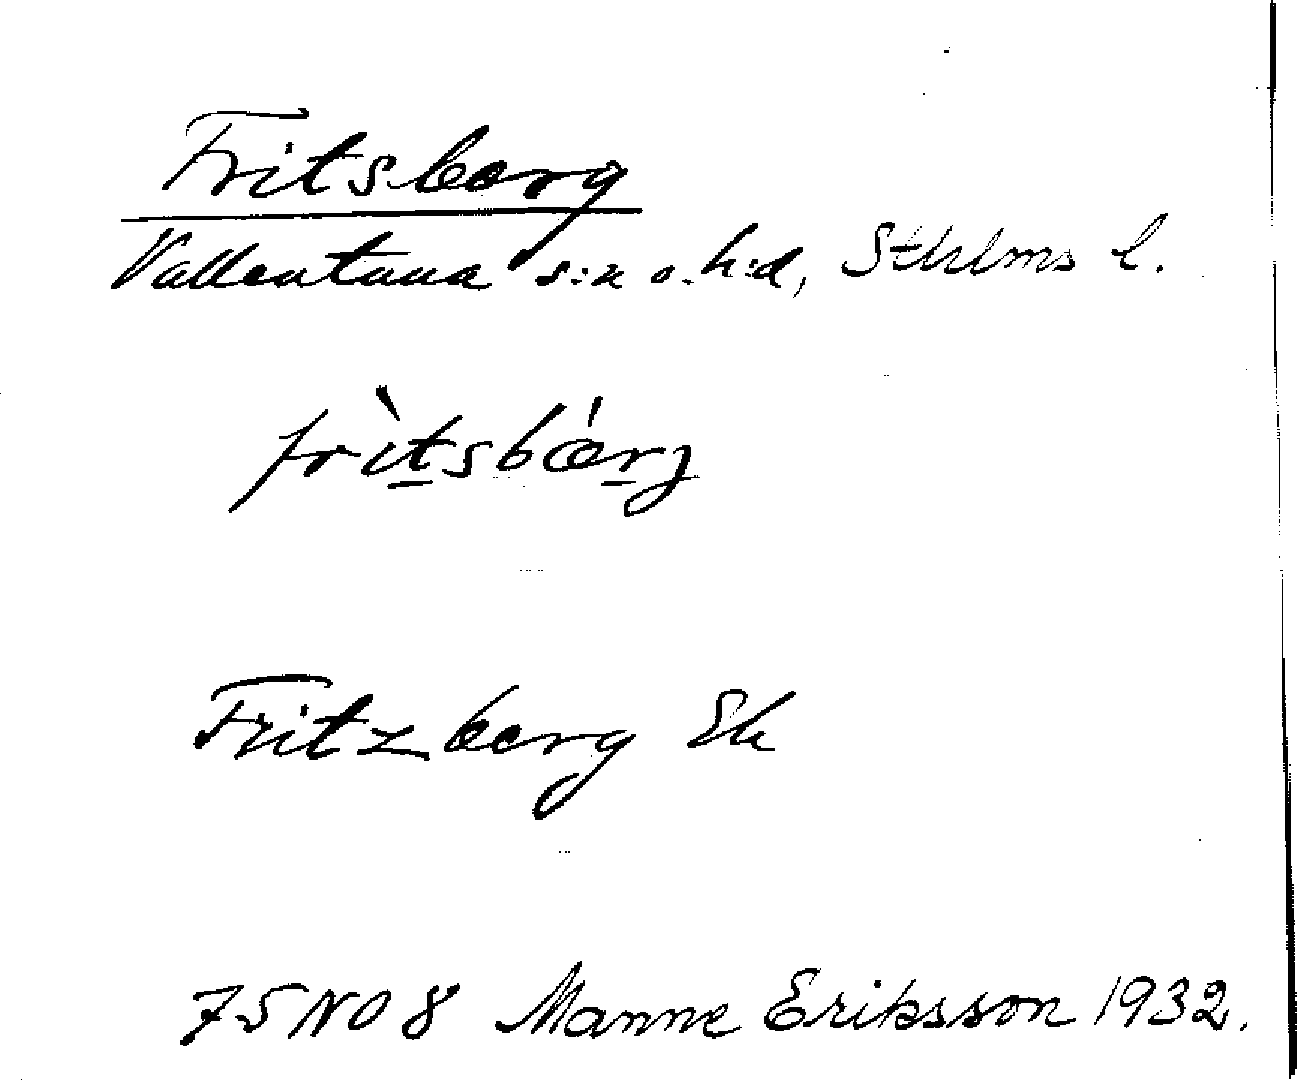 Fritsberg
Vallentuna s:n o. h:d, Sthlms l.
frìtsbǽrj
Fritzberg Ek
75 NO 8 Manne Eriksson 1932.